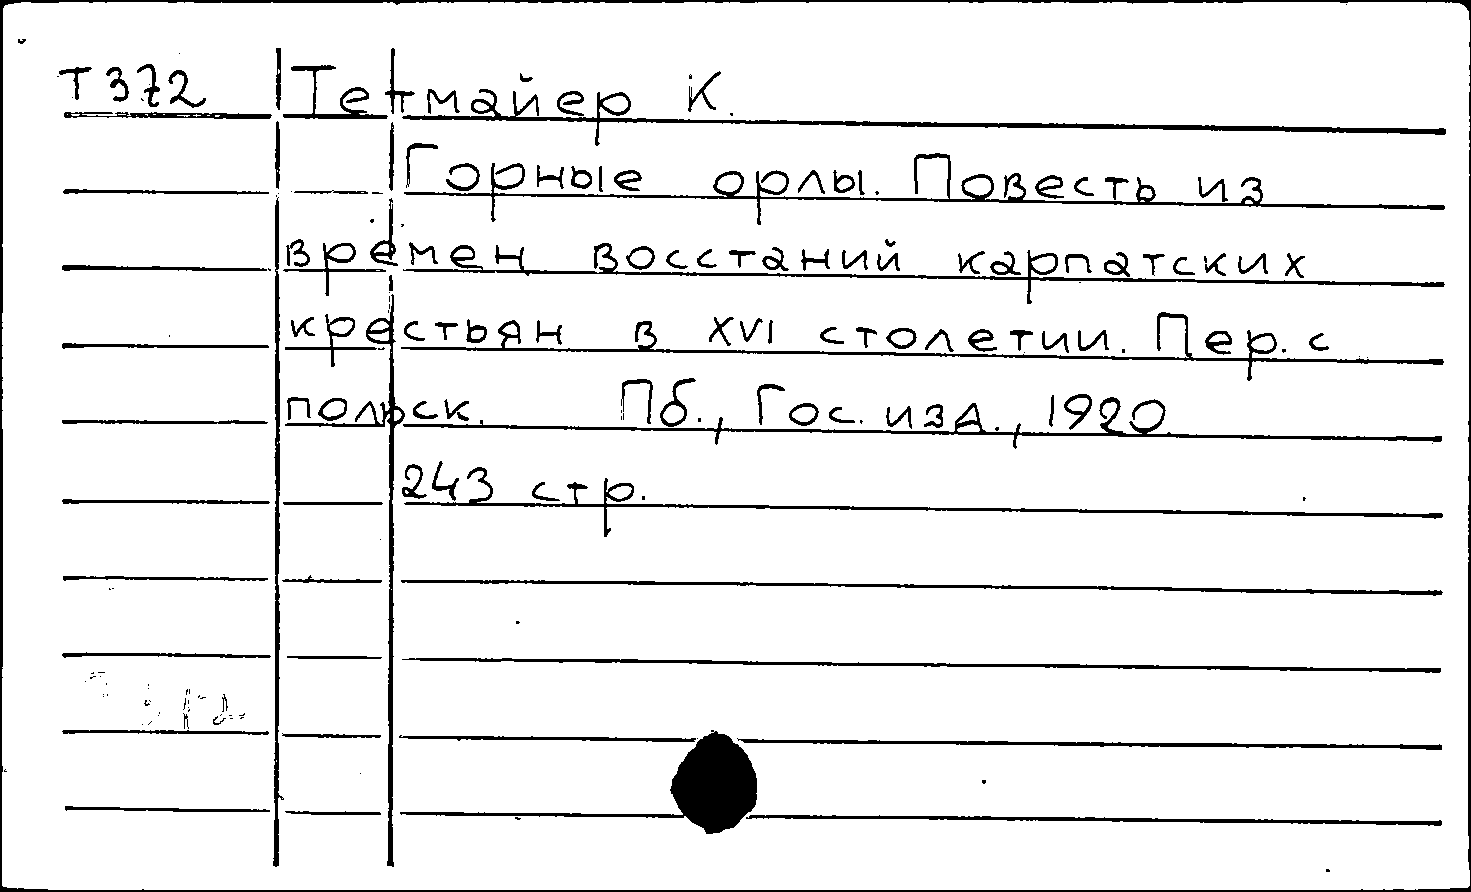 Т372 Тетмайер К.
Горные орлы. Повесть из
времен восстаний карпатских
крестьян в XVI столетии. Пер. с
польск. Пб., Гос. изд., 1920
243 стр.